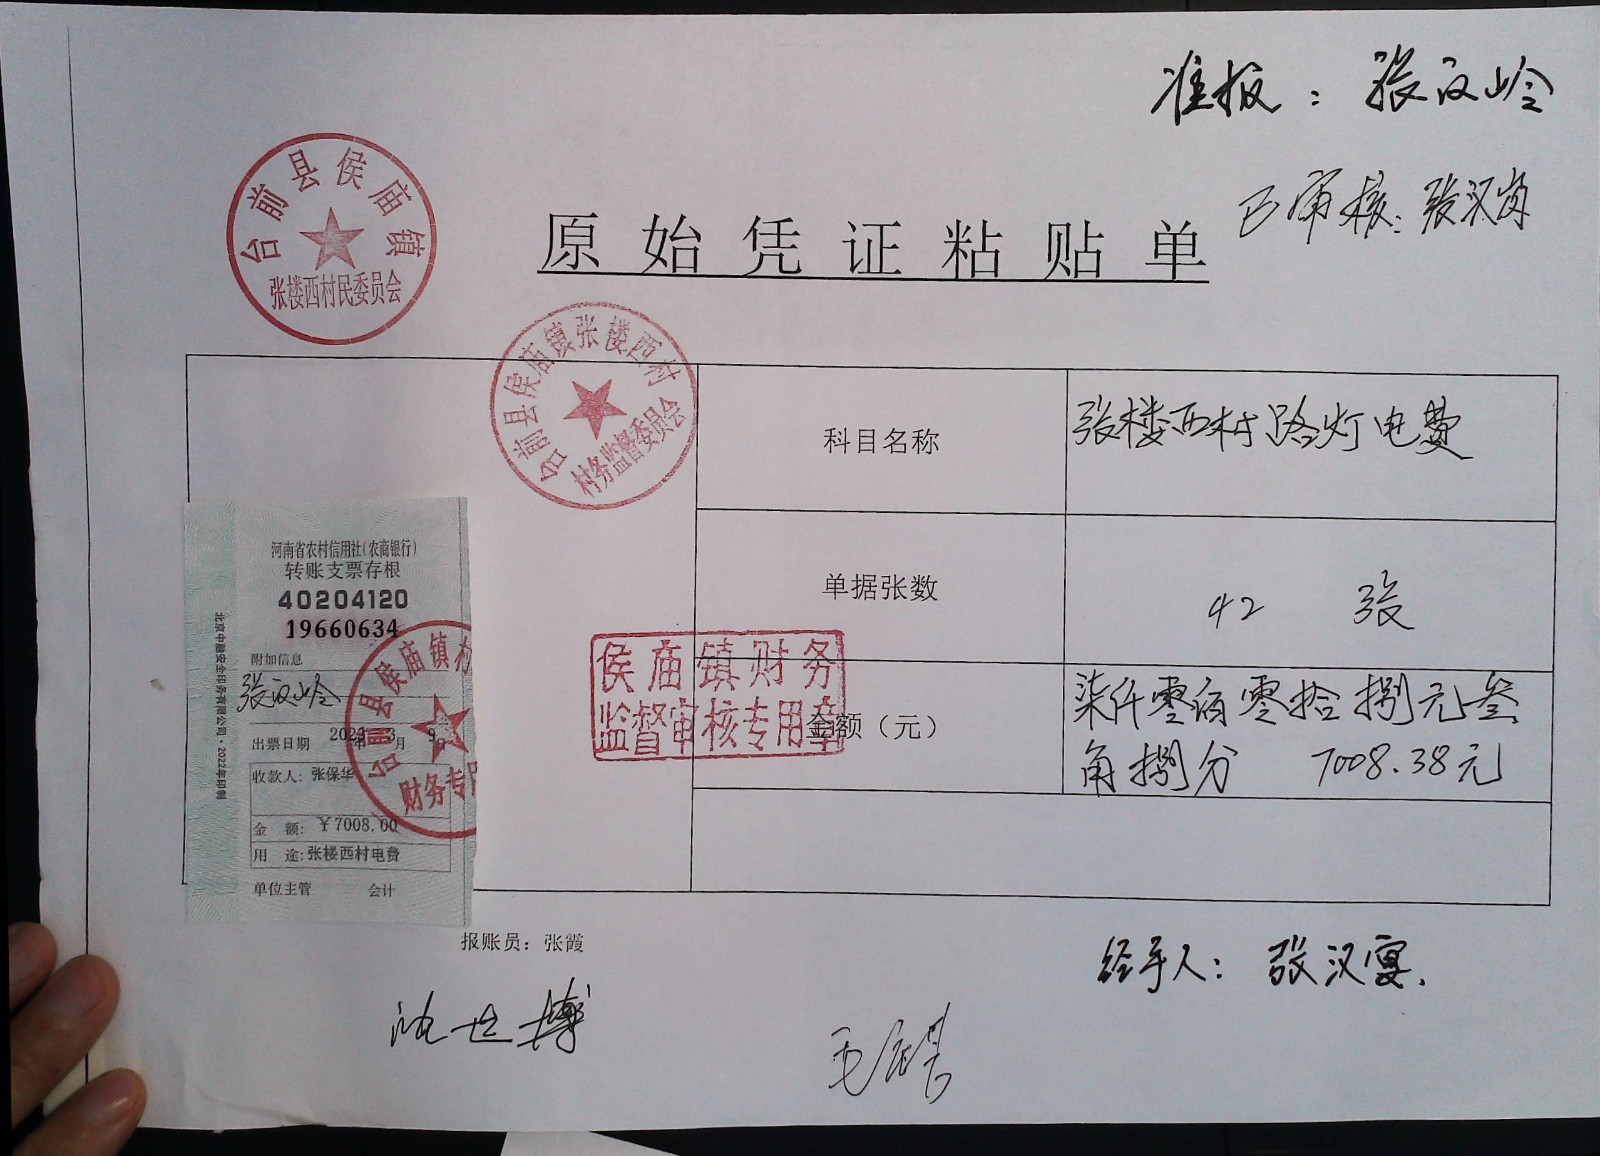 准报：张汉岭
已审核：张汉岗
台前县侯庙镇
张楼西村民委员会
原始凭证粘贴单
台前县侯庙镇张楼西村
村务监督委员会
科目名称
张楼西村路灯电费
单据张数
42 张
侯庙镇财务
监督审核专用章
金额（元）
柒仟零佰零拾捌元叁
角捌分 7008.38元
河南省农村信用社(农商银行)
转账支票存根
40204120
19660634
附加信息
张汉岭
出票日期 年 月 日
收款人：张保华
金 额：￥7008.00
用 途：张楼西村电费
单位主管 会计
北京中融安全印务有限公司·2022年印制
台前县侯庙镇村
财务专用
报账员：张霞
经手人：张汉宴.